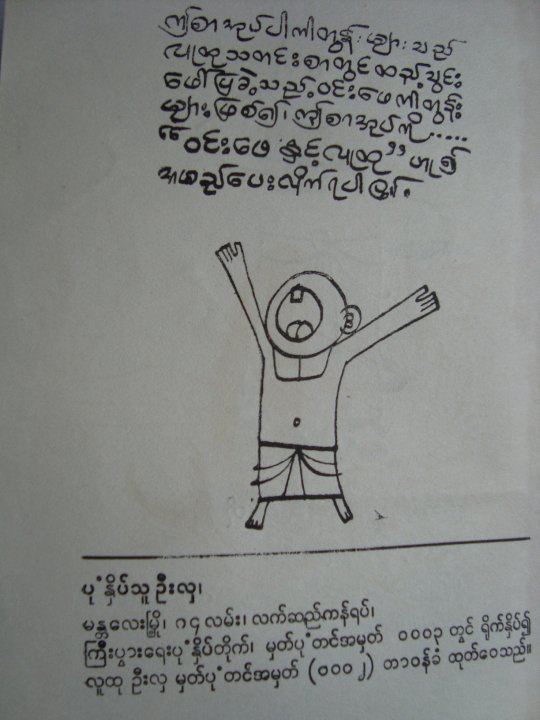 ဤစာအုပ်ပါကာတွန်းများသည်
လူထုသတင်းစာတွင်ထည့်သွင်း
ဖော်ပြခဲ့သည့်ဝင်းဖေကာတွန်း
များဖြစ်၍၊ ဤစာအုပ်ကို.....
"ဝင်းဖေနှင့်လူထု" ဟူ၍
အမည်ပေးလိုက်ရပါကြောင်း။
ပုံနှိပ်သူ ဦးလှ၊
မန္တလေးမြို့၊ ၈၄ လမ်း၊ လက်ဆည်ကန်ရပ်၊
ကြီးပွားရေးပုံနှိပ်တိုက်၊ မှတ်ပုံတင်အမှတ် ၀၀၀၃ တွင် ရိုက်နှိပ်၍
လူထု ဦးလှ မှတ်ပုံတင်အမှတ် (၀၀၀၂) တာဝန်ခံ ထုတ်ဝေသည်။